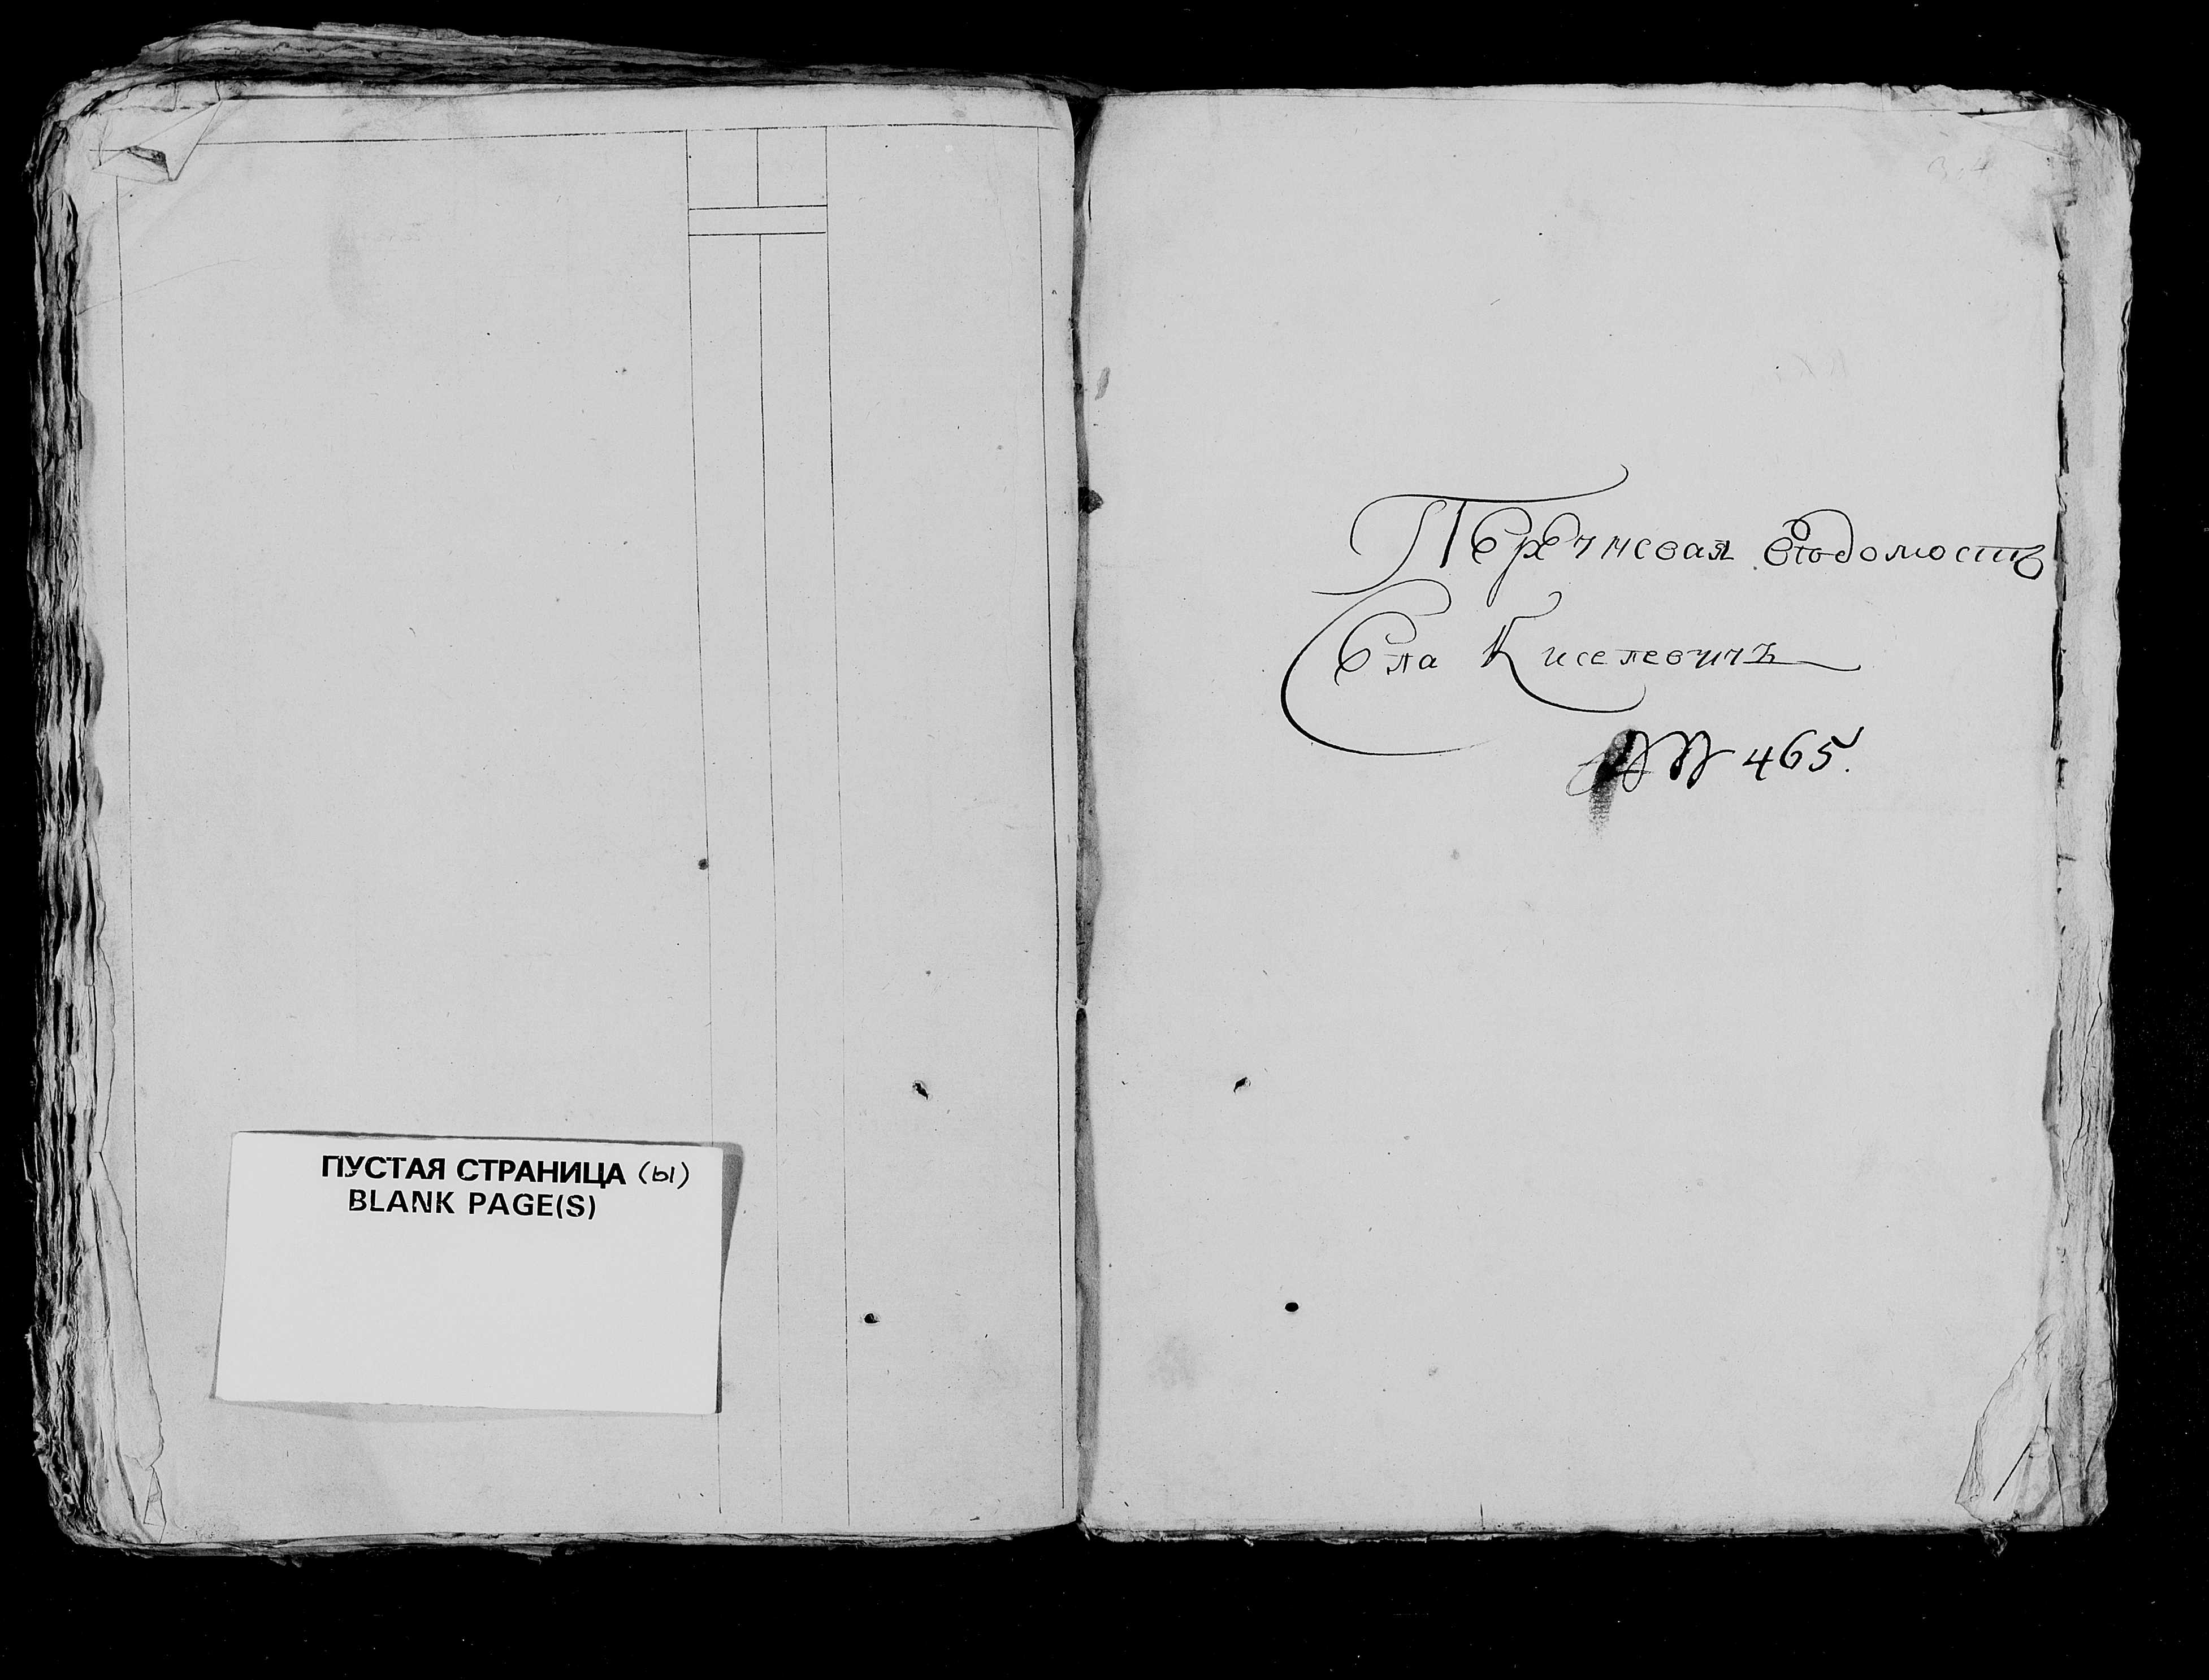 ПУСТАЯ СТРАНИЦА (ы)
BLANK PAGE(S)
Перечневая вѣдомость
Села Киселевичъ
№ 465.